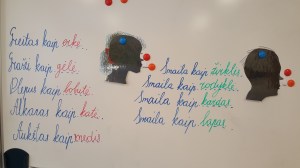 Greitas kaip
Graži kaip gėlė.
Slapus kaip bobutė.
Alkanas kaip katė.
Aukštas kaip
Smaila kaip žirklės.
Smaila kaip rodyklė.
Smaila kaip kardas.
Smaila kaip lapas.